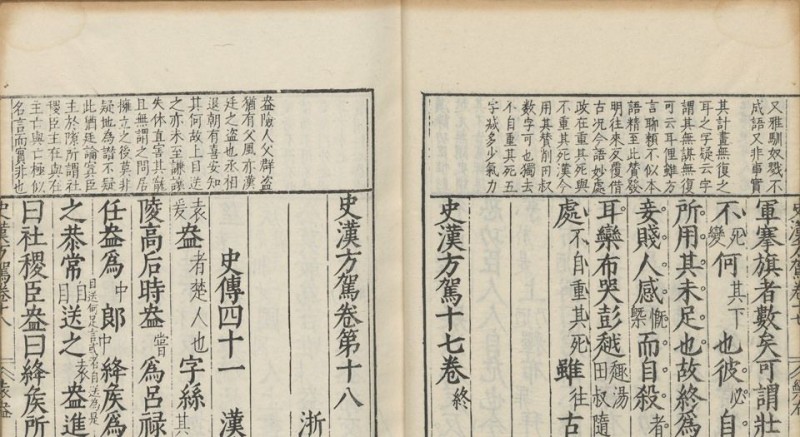 又雅馴奴戮不
成語又非事實
其計畫無復之
耳之字疑云字
謂其無謀無復
可云耳俚雖方
言聊賴不似本
語精至此贊簇
明往來反覆借
古況今語妙處
政在重其死與
不重其死漢今
用其贊削田叔
數字可也獨去
不自重其死五
字減多少氣力
軍搴旗者數矣可謂壯
不死變何其下也彼必自
所用其未足也故終爲
妾賤人感慨槩而自殺者
耳欒布哭彭越趣湯田叔隨
處不自重其死雖往古
史漢方駕十七卷終
盎險人父群盜
猶有父風亦漢
廷之盜也丞相
退朝有喜安知
其何故上目送
之亦未至謙謙
失休直害其能
且無謂之問居
擁立之後莫非
疑地為譖不疑
此猶廷論宰臣
主於際所謂社
稷臣主在與在
主亡與亡極似
名言而實非也
史漢方駕卷第十八
浙
史傳四十一 漢
袁爰盎者楚人也字絲其
陵高后時盎嘗爲呂祿
任盎爲中郎中絳侯爲
目送何足言或名自送為是
之恭常自目送之袁盎進
曰社稷臣盎曰絳侯所
史漢方駕卷十八 袁盎